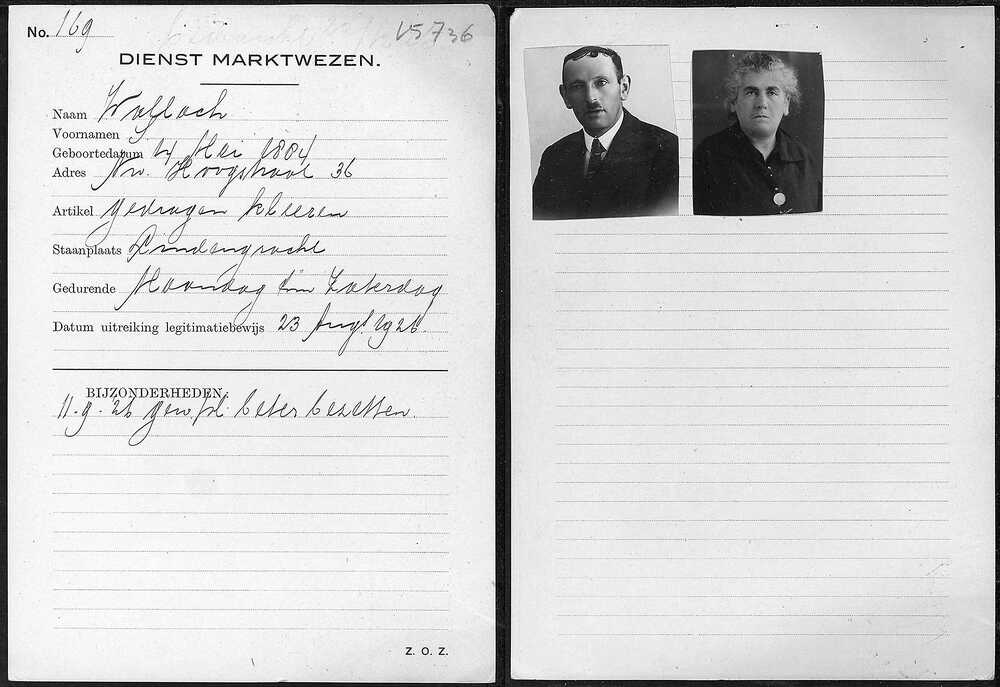 No. 169
V5736
DIENST MARKTWEZEN.
Naam Wallach
Voornamen
Geboortedatum 4 Mei 1884
Adres Nw. Hoogstraat 36
Artikel gedragen kleeren
Staanplaats Lindengracht
Gedurende Maandag t/m Zaterdag
Datum uitreiking legitimatiebewijs 23 Augt. 1926.
BIJZONDERHEDEN.
11.9.26 gew. pl. beter bezetten.
Z. O. Z.